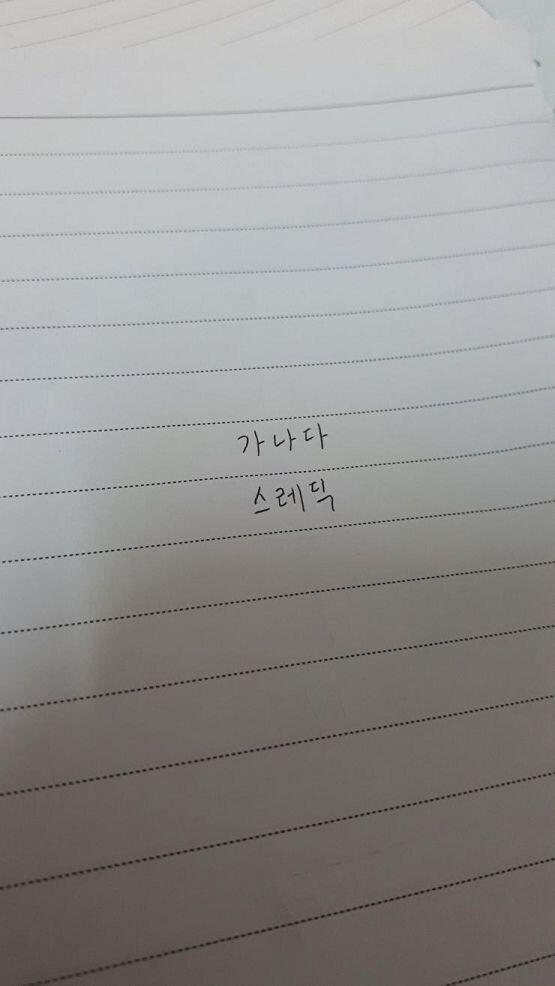 가나다
스레딕